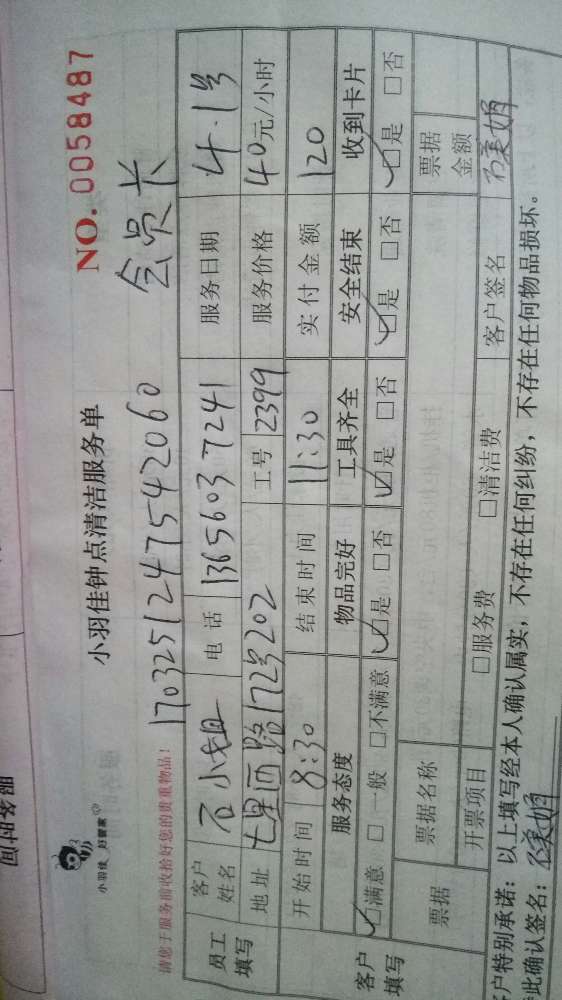 小羽佳 好管家
小羽佳钟点清洁服务单
NO. 0058487
请您于服务前收拾好您的贵重物品！
1703251247542060 会员卡
员工填写
客户姓名 石小姐 电话 13656037241 服务日期 4.1号
地址 七星西路172号202 工号 2399 服务价格 40元/小时
开始时间 8:30 结束时间 11:30 实付金额 120
客户填写
服务态度 物品完好 工具齐全 安全结束 收到卡片
☑满意 □一般 □不满意 ☑是 □否 ☑是 □否 ☑是 □否 ☑是 □否
票据 票据名称 票据金额
开票项目 □服务费 □清洁费 客户签名
客户特别承诺：以上填写经本人确认属实，不存在任何纠纷，不存在任何物品损坏。
特此确认签名：